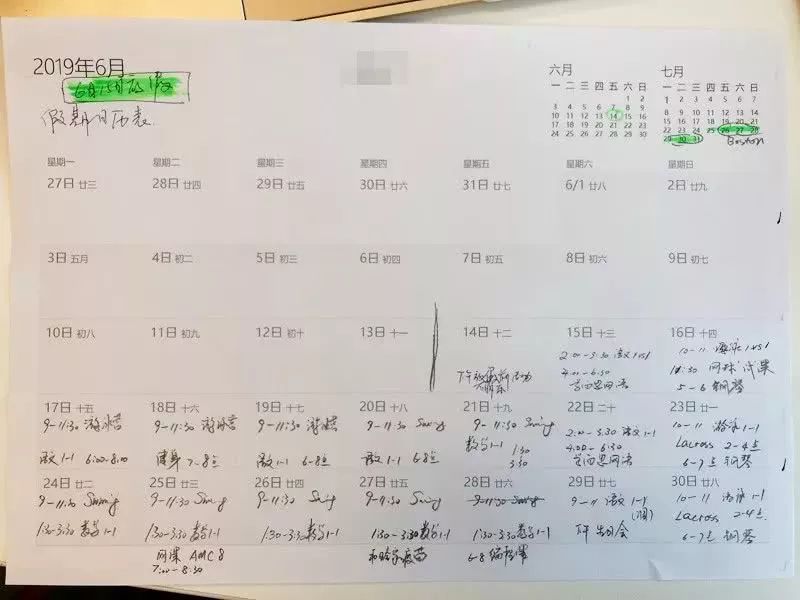 2019年6月
假期日历表
六月
一 二 三 四 五 六 日
1 2
3 4 5 6 7 8 9
10 11 12 13 14 15 16
17 18 19 20 21 22 23
24 25 26 27 28 29 30
七月
一 二 三 四 五 六 日
1 2 3 4 5 6 7
8 9 10 11 12 13 14
15 16 17 18 19 20 21
22 23 24 25 26 27 28
29 30 31
Boston
星期一 星期二 星期三 星期四 星期五 星期六 星期日
27日 廿三 28日 廿四 29日 廿五 30日 廿六 31日 廿七 6/1 廿八 2日 廿九
3日 五月 4日 初二 5日 初三 6日 初四 7日 初五 8日 初六 9日 初七
10日 初八 11日 初九 12日 初十 13日 十一 14日 十二 15日 十三 16日 十四
下午 活动
2:00-3:30 语文1vs1
4:00-6:30
10-11 游泳1vs1
网球试课
5-6 钢琴
17日 十五 18日 十六 19日 十七 20日 十八 21日 十九 22日 二十 23日 廿一
9-11:30 游泳营 9-11:30 游泳营 9-11:30 游泳营 9-11:30 Swing 9-11:30 Swing
2:00-3:30 语文1-1 10-11 游泳1-1
语文1-1 6:00-8:00 健身 7-8点 语文1-1 6-8点 语文1-1 6-8点 数学1-1 1:30 3:30
4:00-6:30 Lacross 2-4点
6-7点 钢琴
24日 廿二 25日 廿三 26日 廿四 27日 廿五 28日 廿六 29日 廿七 30日 廿八
9-11:30 9-11:30 9-11:30 9-11:30 9-11:30 9-11 语文1-1 10-11 游泳1-1
1:30-3:30 数学1-1 1:30-3:30 数学1-1 1:30-3:30 数学1-1 1:30-3:30 数学1-1 1:30-3:30 数学1-1 下午 生日会 Lacross 2-4点
网课 AMC8 疫苗 6-8 编程课 6-7点 钢琴
7:00-8:30